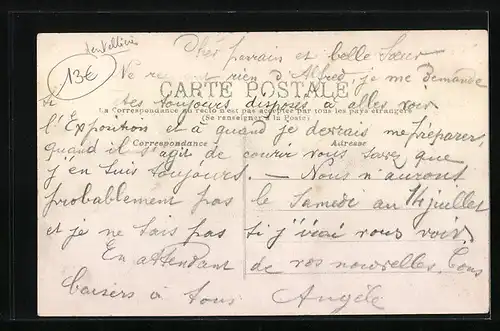 dentellières
13€
Cher parrain et belle Sœur
Ne recevant rien d'Alfred, je me demande
CARTE POSTALE
si êtes toujours disposés à aller voir
La Correspondance au recto n'est pas acceptée par tous les pays étrangers
(Se renseigner à la Poste)
l'Exposition et à quand je devrais me préparer,
Correspondance Adresse
quand il s'agit de courir vous savez que
j'en suis toujours. — Nous n'aurons
probablement pas le Samedi au 14 juillet
et je ne sais pas si j'irai vous voir.
En attendant de vos nouvelles, bons
baisers à tous Angèle